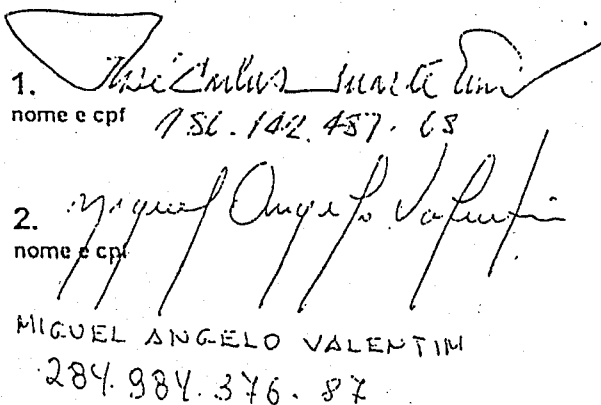 1. José Carlos
nome e cpf 186.142.487.68
2. Miguel Angelo Valentim
nome e cpf
MIGUEL ANGELO VALENTIM
284.984.376.87